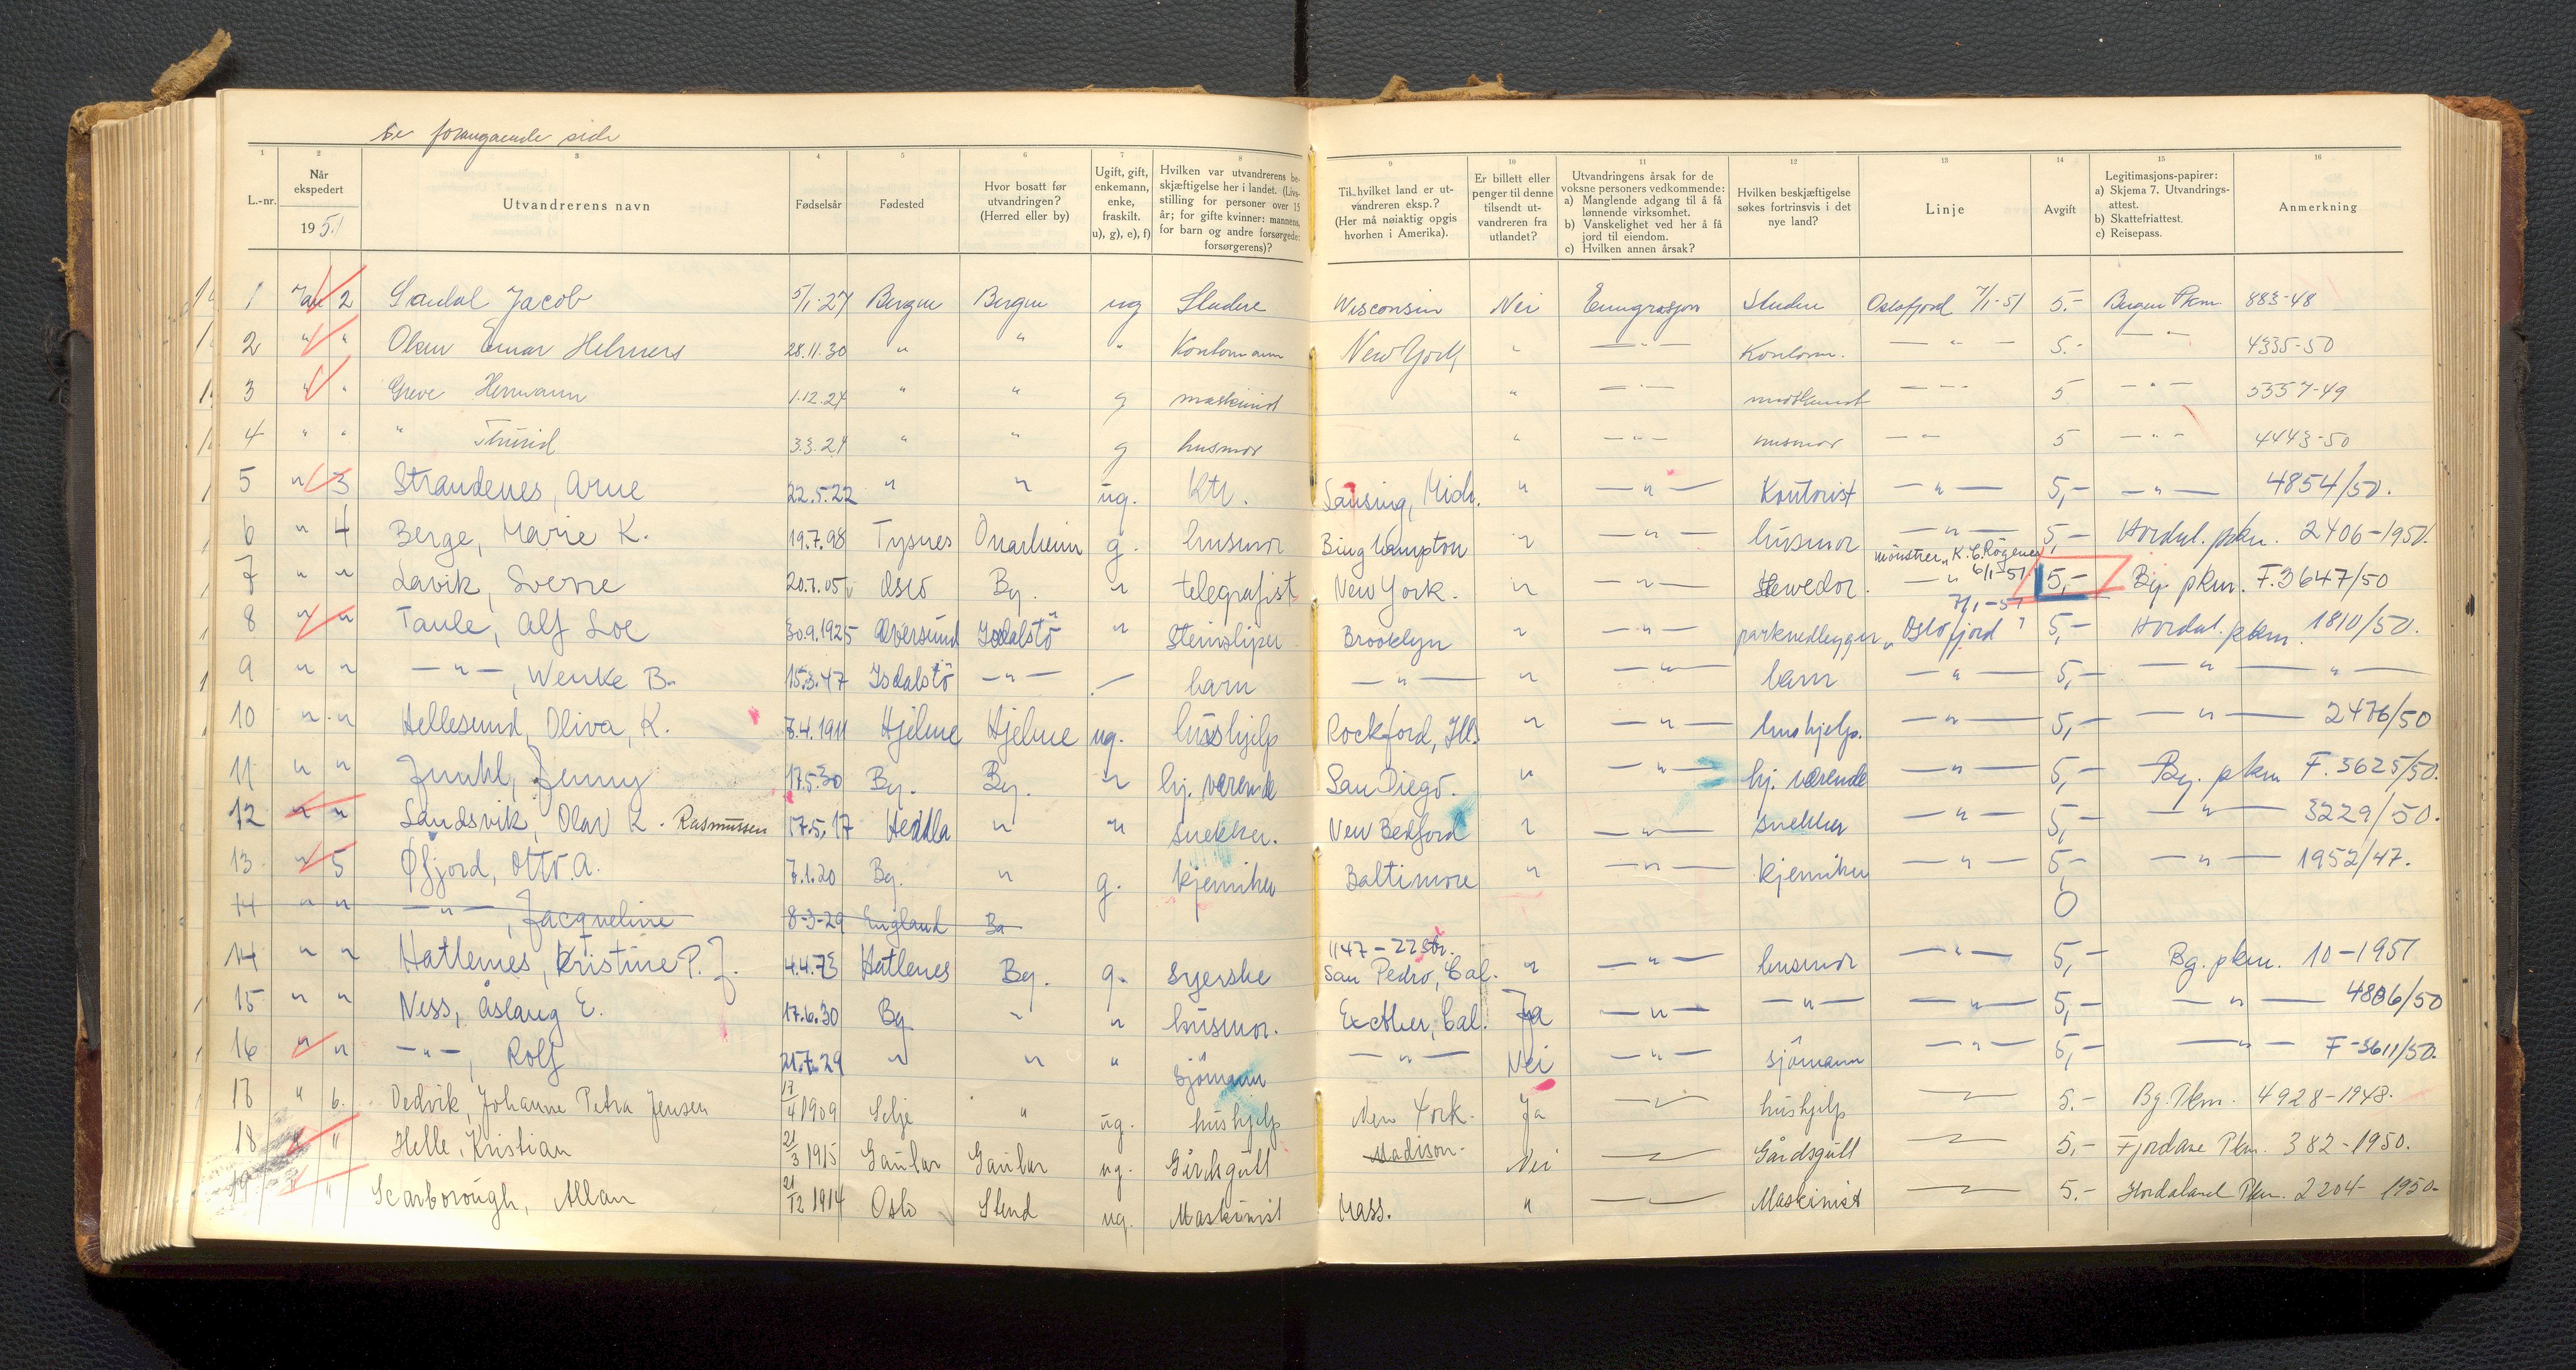 Se foregaaende side
1 2 3 4 5 6 7 8 9 10 11 12 13 14 15 16
L.-nr. Når ekspedert 1951 Utvandrerens navn Fødselsår Fødested Hvor bosatt før utvandringen? (Herred eller by) Ugift, gift, enkemann, enke, fraskilt. u), g), e), f) Hvilken var utvandrerens beskjæftigelse her i landet. (Livsstilling for personer over 15 år; for gifte kvinner: mannens, for barn og andre forsørgede: forsørgerens)? Til hvilket land er utvandreren eksp.? (Her må nøiaktig opgis hvorhen i Amerika). Er billett eller penger til denne tilsendt utvandreren fra utlandet? Utvandringens årsak for de voksne personers vedkommende: a) Manglende adgang til å få lønnende virksomhet. b) Vanskelighet ved her å få jord til eiendom. c) Hvilken annen årsak? Hvilken beskjæftigelse søkes fortrinsvis i det nye land? Linje Avgift Legitimasjons-papirer: a) Skjema 7. Utvandringsattest. b) Skattefriattest. c) Reisepass. Anmerkning
1 Jan 2 Jacob 5/1-27 Bergen Bergen ug Wisconsin Nei Emigrasjon Oslofjord 7/1-51 5.- Bergen Pkm. 883-48
2 " " Olsen Einar Helmers 28.11.30 " " " Kontormann New York " — " — Kontorm. — " — 5.- — " — 4335-50
3 " " Greve Hermann 1.12.24 " " g maskinist " — " — maskinist — " — 5 — " — 5357-49
4 " " " Thurid 3.3.24 " " g husmor " — " — husmor — " — 5 — " — 4443-50
5 " 3 Strandenes, Arne 22.5.22 " " ug. Ktr. Lansing, Mich. " — " — Kontorist — " — 5,- — " — 4854/50.
6 " 4 Berge, Marie K. 19.7.98 Tysnes Onarheim g. husmor Binghampton " — " — husmor — " — 5,- Hordal. pkm. 2406-1950.
7 " " Lavik, Sverre 20.7.05 Oslo Bg. " telegrafist New York. " — " — Stewedor. mønstrer "K. C. Rögenes — " 6/1-51 5,- Bg. pkm. F.3647/50
8 " " Taule, Alf Loe 30.9.1925 Alversund Isdalstö " Steinsliper Brooklyn " — " — "Oslofjord" 7/1-51 5,- Hordal. pkm. 1810/50.
9 " " — " —, Wenke B. 15.3.47 Isdalstö — " — — barn — " — " — " — barn — " — 5,- — " — — " —
10 " " Hellesund, Oliva, K. 7.4.1911 Hjelme Hjelme ug. hushjelp Rockford, Ill. " — " — hushjelp. — " — 5,- — " — 2476/50
11 " " Jenny 17.5.30 Bg. Bg. " hj. værende San Diego. " — " — hj. værende — " — 5,- Bg. pkm F. 3625/50.
12 " " Landsvik, Olav K. Rasmussen 17.5.17 Herdla " " snekker. New Bedford " — " — snekker — " — 5,- — " — 3229/50.
13 " 5 Øfjord, Otto. A. 7.1.20 Bg. " g. kjemiker Baltimore " — " — kjemiker — " — 5,- — " — 1952/47.
14 " " — " —, Jacqueline 8-3-29 England Bg 0
14 " " Hatlenes, Kristine P. J. 4.4.73 Hatlenes Bg. g. syerske 1147 - 22 Str. San Pedro, Cal. " — " — husmor — " — 5,- Bg. pkm. 10-1951
15 " " Ness, Åslaug E. 17.6.30 Bg " " husmor. Excther, Cal. Ja — " — — " — — " — 5,- — " — 4806/50
16 " " — " —, Rolf 21.7.29 " " " Sjömann — " — Nei — " — sjömann — " — 5,- — " — F-3611/50.
17 " 6. Dedvik, Johanne Petra Jensen 17/4 1909 Selje " ug. hushjelp New York. Ja — " — hushjelp — " — 5.- Bg. Pkm. 4928-1948.
18 " " Helle, Kristian 21/3 1915 Gaular Gaular ug. Gårdsgutt Madison. Nei — " — Gårdsgutt — " — 5,- Fjordane Pkm. 382-1950.
19 " " Scarborough, Allan 21/12 1914 Oslo Stend ug. Maskinist Mass. " — " — Maskinist — " — 5.- Hordaland Pkm. 2204-1950.